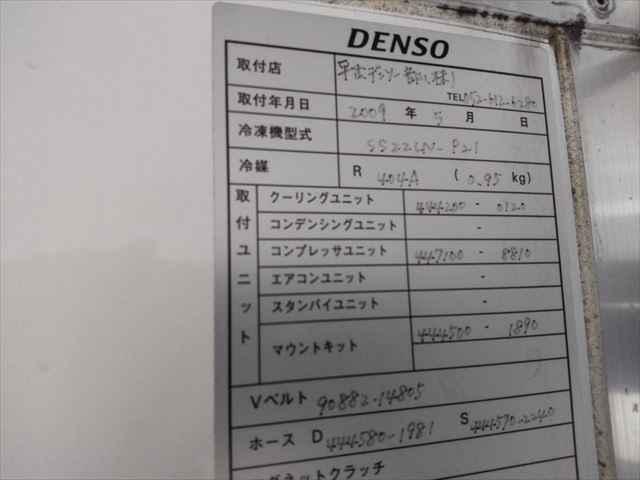 DENSO
取付店
TEL 052-612-6280
取付年月日 2009 年 5 月 日
冷凍機型式
冷媒 R 404A ( 0.95 kg)
取付ユニット
クーリングユニット 444200 - 0120
コンデンシングユニット -
コンプレッサユニット 447100 - 8810
エアコンユニット -
スタンバイユニット -
マウントキット 444500 - 1890
Vベルト 90882-14805
ホース D 444580-1981 S 444570-2240
グネットクラッチ